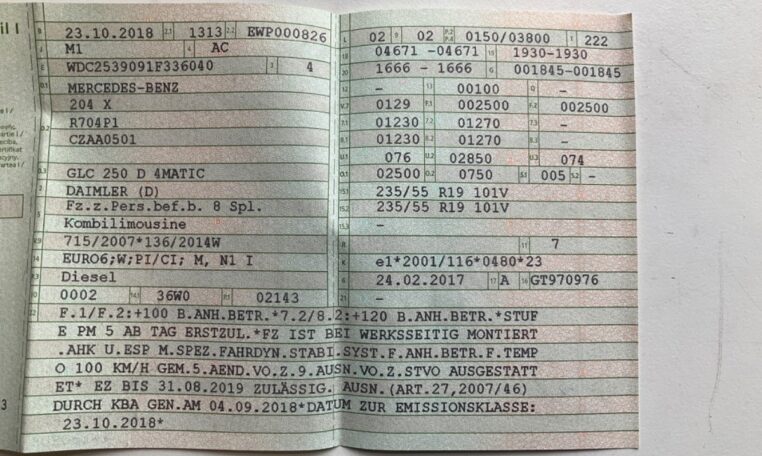 23.10.2018 1313 EWP000826 02 02 0150/03800 222
M1 AC 04671 -04671 1930-1930
WDC2539091F336040 4 1666 - 1666 001845-001845
MERCEDES-BENZ - 00100 -
204 X 0129 002500 002500
R704P1 01230 01270 -
CZAA0501 01230 01270 -
076 02850 074
GLC 250 D 4MATIC 02500 0750 005 -
DAIMLER (D) 235/55 R19 101V
Fz.z.Pers.bef.b. 8 Spl. 235/55 R19 101V
Kombilimousine -
715/2007*136/2014W 7
EURO6;W;PI/CI; M, N1 I e1*2001/116*0480*23
Diesel 24.02.2017 A GT970976
0002 36W0 02143 -
F.1/F.2:+100 B.ANH.BETR.*7.2/8.2:+120 B.ANH.BETR.*STUF
E PM 5 AB TAG ERSTZUL.*FZ IST BEI WERKSSEITIG MONTIERT
.AHK U.ESP M.SPEZ.FAHRDYN.STABI.SYST.F.ANH.BETR.F.TEMP
O 100 KM/H GEM.5.AEND.VO.Z.9.AUSN.VO.Z.STVO AUSGESTATT
ET* EZ BIS 31.08.2019 ZULÄSSIG. AUSN.(ART.27,2007/46)
DURCH KBA GEN.AM 04.09.2018*DATUM ZUR EMISSIONSKLASSE:
23.10.2018*